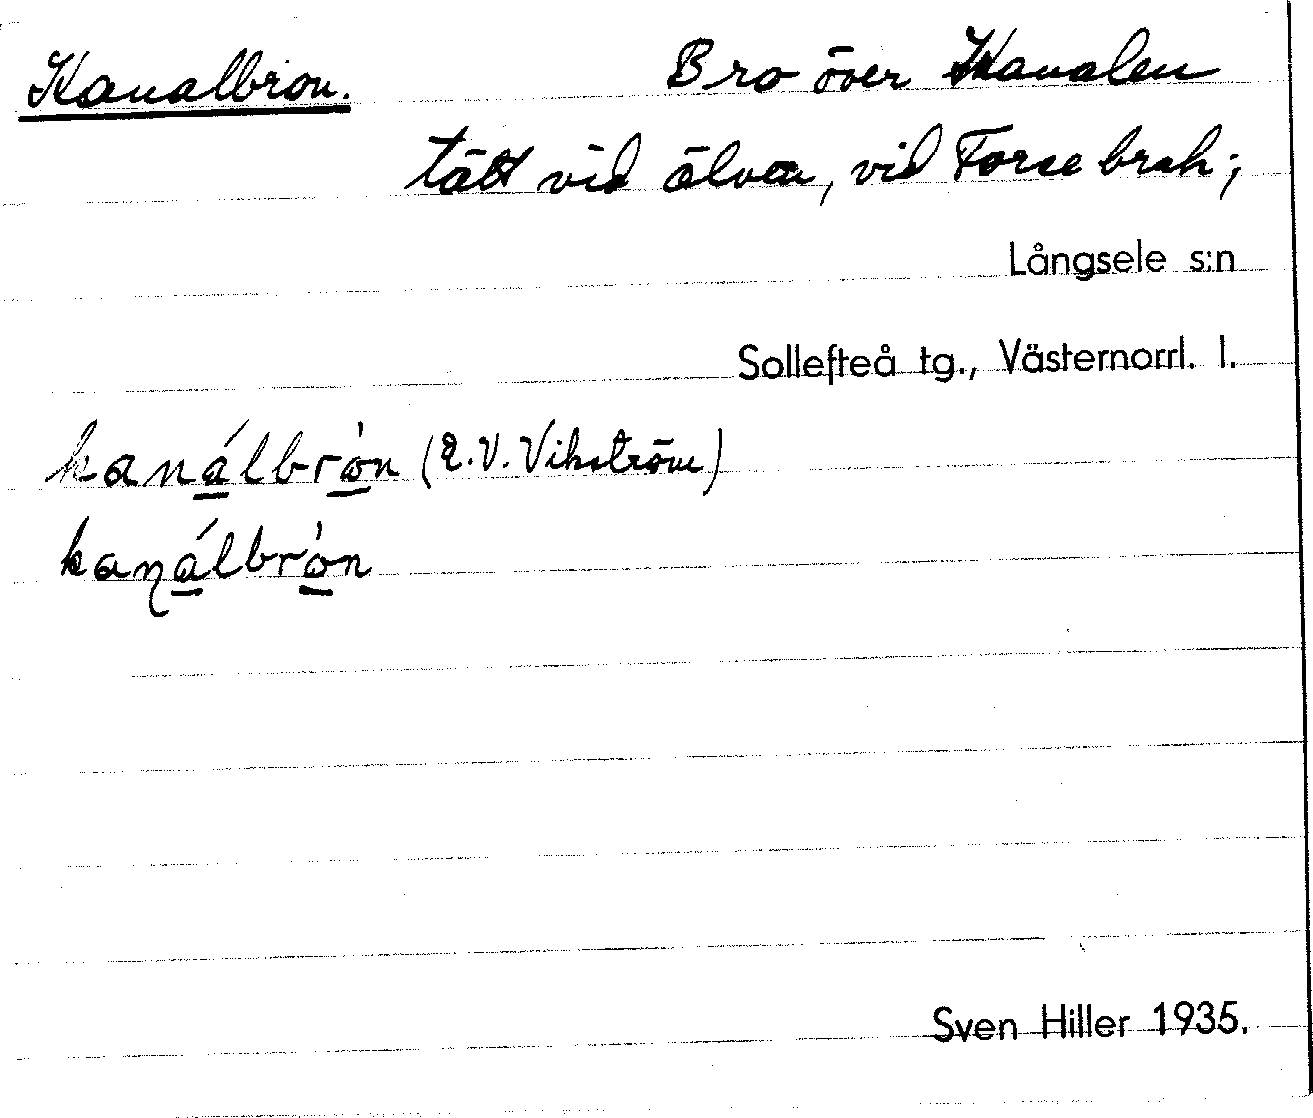 Kanalbron. Bro över Kanalen
tätt vid älven, vid Forse bruk;
Långsele s:n
Sollefteå tg., Västernorrl. l.
kanálbròn (E.V. Vikström)
kaṇálbròn
Sven Hiller 1935.